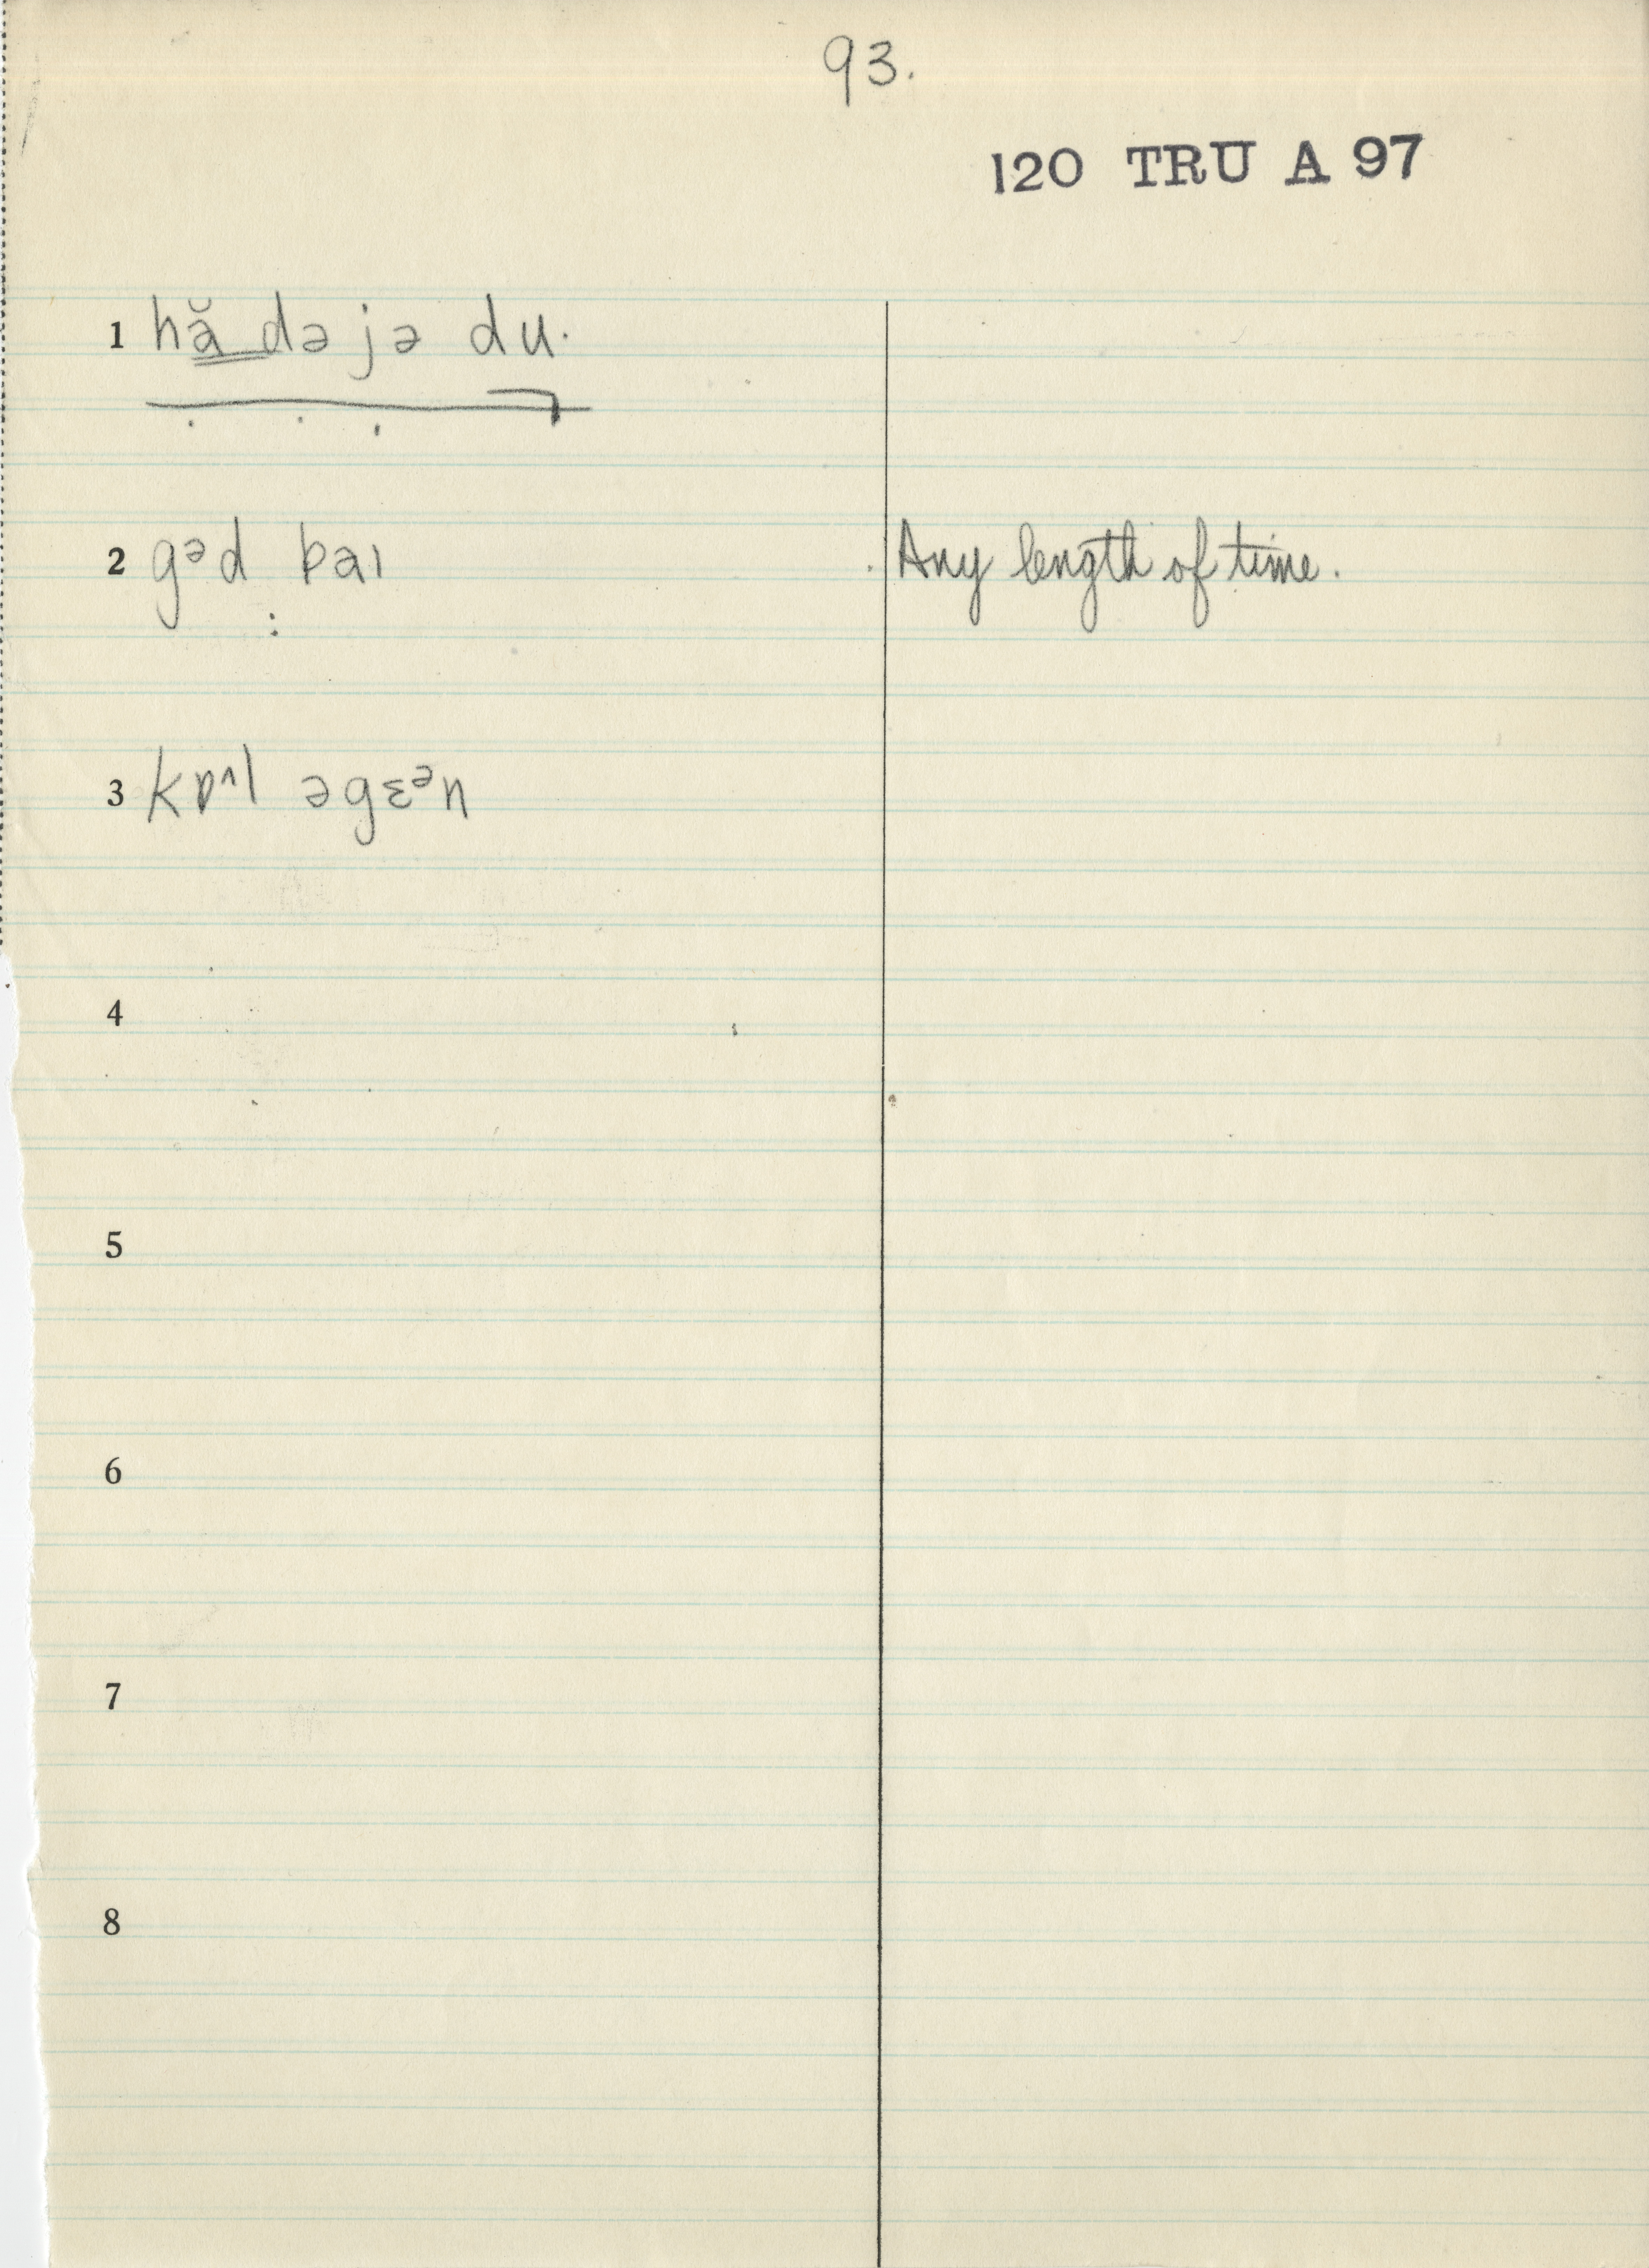 93.
120 TRU A 97
1 hă də jə du.
2 gᵊd bai Any length of time.
3 kɒ^l əgɛᵊn
4
5
6
7
8